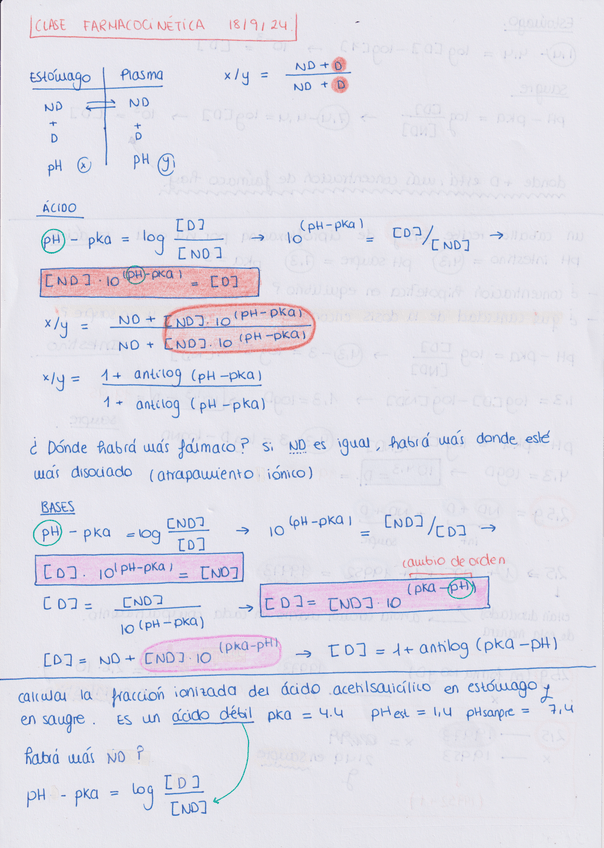 CLASE FARMACOCINÉTICA 18/9/24.
ESTÓMAGO | Plasma
x/y = ND + D / ND + D
ND ⇌ ND
+ +
D D
pH x pH y
ÁCIDO
pH - pka = log [D]/[ND] → 10^(pH-pka) = [D]/[ND] →
[ND] · 10^(pH-pka) = [D]
x/y = ND + [ND] · 10^(pH-pka) / ND + [ND] · 10^(pH-pka)
x/y = 1 + antilog (pH-pka) / 1 + antilog (pH-pka)
¿ Dónde habrá más fármaco? si ND es igual, habrá más donde esté
más disociado (atrapamiento iónico)
BASES
pH - pka = log [ND]/[D] → 10^(pH-pka) = [ND]/[D] →
[D] · 10^(pH-pka) = [ND]
cambio de orden
[D] = [ND] / 10^(pH-pka) → [D] = [ND] · 10^(pka-pH)
[D] = ND + [ND] · 10^(pka-pH) → [D] = 1 + antilog (pka-pH)
calcular fracción ionizada del ácido acetilsalicílico en estómago y
en sangre. Es un ácido débil pka = 4.4 pHest = 1,4 pHsangre = 7,4
habrá más ND?
pH - pka = log [D]/[ND]